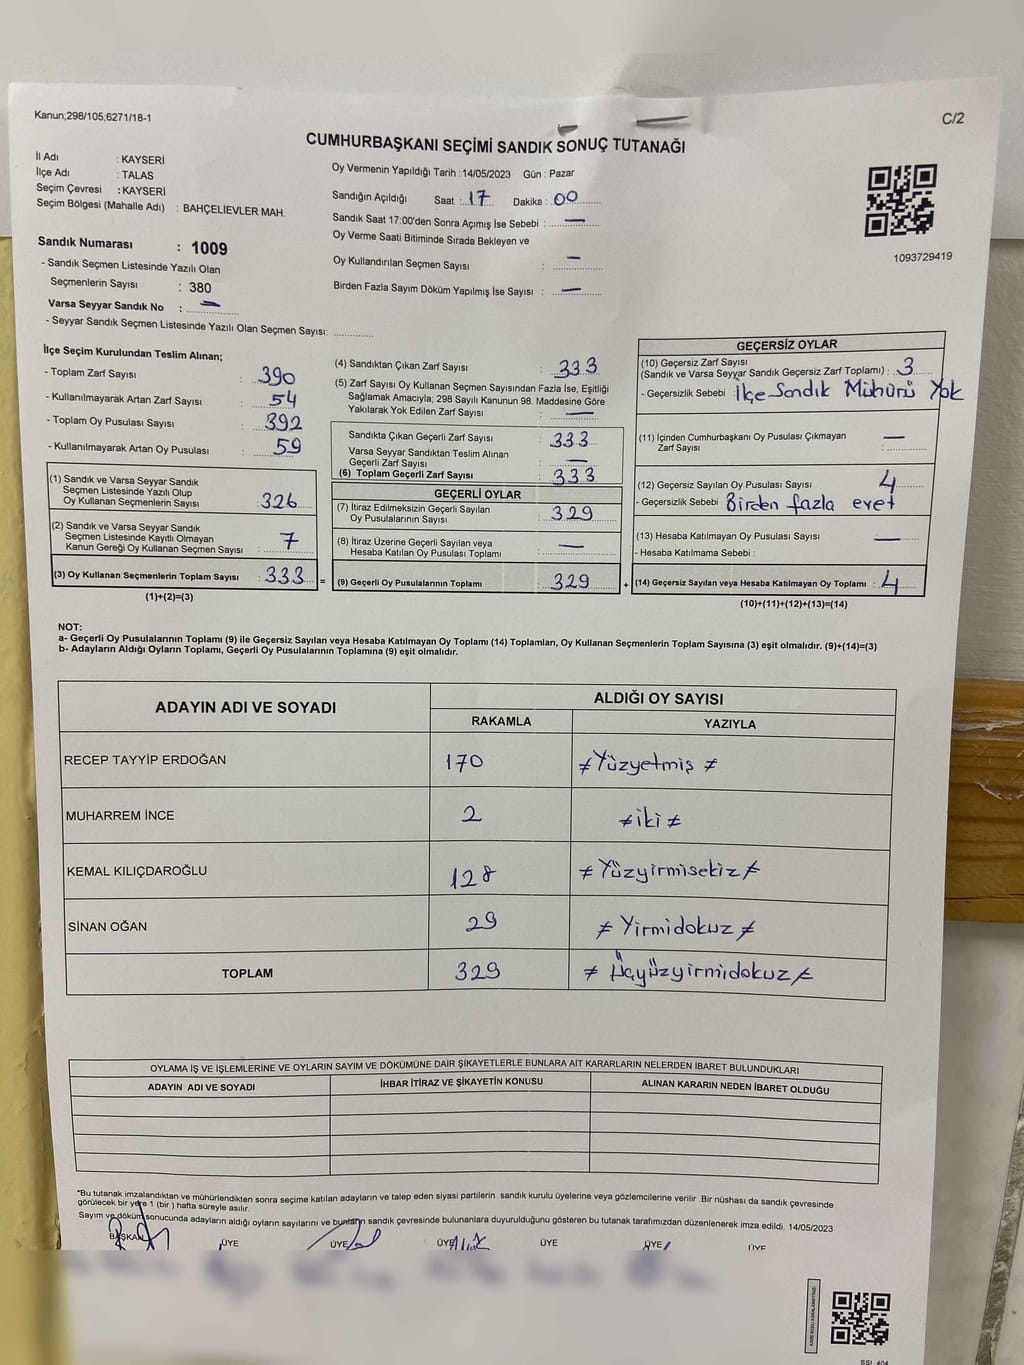 Kanun;298/105;6271/18-1
C/2
CUMHURBAŞKANI SEÇİMİ SANDIK SONUÇ TUTANAĞI
İl Adı : KAYSERİ
İlçe Adı : TALAS
Seçim Çevresi : KAYSERİ
Seçim Bölgesi (Mahalle Adı) : BAHÇELİEVLER MAH.
Sandık Numarası : 1009
- Sandık Seçmen Listesinde Yazılı Olan
Seçmenlerin Sayısı : 380
Varsa Seyyar Sandık No : —
- Seyyar Sandık Seçmen Listesinde Yazılı Olan Seçmen Sayısı:
Oy Vermenin Yapıldığı Tarih : 14/05/2023 Gün : Pazar
Sandığın Açıldığı Saat : 17 Dakika : 00
Sandık Saat 17:00'den Sonra Açımış İse Sebebi : —
Oy Verme Saati Bitiminde Sırada Bekleyen ve
Oy Kullandırılan Seçmen Sayısı : —
Birden Fazla Sayım Döküm Yapılmış İse Sayısı : —
1093729419
İlçe Seçim Kurulundan Teslim Alınan;
- Toplam Zarf Sayısı : 390
- Kullanılmayarak Artan Zarf Sayısı : 54
- Toplam Oy Pusulası Sayısı : 392
- Kullanılmayarak Artan Oy Pusulası : 59
(1) Sandık ve Varsa Seyyar Sandık
Seçmen Listesinde Yazılı Olup
Oy Kullanan Seçmenlerin Sayısı : 326
(2) Sandık ve Varsa Seyyar Sandık
Seçmen Listesinde Kayıtlı Olmayan
Kanun Gereği Oy Kullanan Seçmen Sayısı : 7
(3) Oy Kullanan Seçmenlerin Toplam Sayısı : 333 =
(1)+(2)=(3)
(4) Sandıktan Çıkan Zarf Sayısı : 333
(5) Zarf Sayısı Oy Kullanan Seçmen Sayısından Fazla İse, Eşitliği
Sağlamak Amacıyla; 298 Sayılı Kanunun 98. Maddesine Göre
Yakılarak Yok Edilen Zarf Sayısı : —
Sandıkta Çıkan Geçerli Zarf Sayısı : 333
Varsa Seyyar Sandıktan Teslim Alınan
Geçerli Zarf Sayısı : —
(6) Toplam Geçerli Zarf Sayısı : 333
GEÇERLİ OYLAR
(7) İtiraz Edilmeksizin Geçerli Sayılan
Oy Pusulalarının Sayısı : 329
(8) İtiraz Üzerine Geçerli Sayılan veya
Hesaba Katılan Oy Pusulası Toplamı : —
(9) Geçerli Oy Pusulalarının Toplamı : 329 +
GEÇERSİZ OYLAR
(10) Geçersiz Zarf Sayısı
(Sandık ve Varsa Seyyar Sandık Geçersiz Zarf Toplamı) : 3
- Geçersizlik Sebebi : İlçe Sandık Mühürü Yok
(11) İçinden Cumhurbaşkanı Oy Pusulası Çıkmayan
Zarf Sayısı : —
(12) Geçersiz Sayılan Oy Pusulası Sayısı : 4
- Geçersizlik Sebebi Birden fazla evet
(13) Hesaba Katılmayan Oy Pusulası Sayısı : —
- Hesaba Katılmama Sebebi :
(14) Geçersiz Sayılan veya Hesaba Katılmayan Oy Toplamı : 4
(10)+(11)+(12)+(13)=(14)
NOT:
a- Geçerli Oy Pusulalarının Toplamı (9) ile Geçersiz Sayılan veya Hesaba Katılmayan Oy Toplamı (14) Toplamları, Oy Kullanan Seçmenlerin Toplam Sayısına (3) eşit olmalıdır. (9)+(14)=(3)
b- Adayların Aldığı Oyların Toplamı, Geçerli Oy Pusulalarının Toplamına (9) eşit olmalıdır.
ADAYIN ADI VE SOYADI ALDIĞI OY SAYISI
RAKAMLA YAZIYLA
RECEP TAYYİP ERDOĞAN 170 ≠ Yüzyetmiş ≠
MUHARREM İNCE 2 ≠ iki ≠
KEMAL KILIÇDAROĞLU 128 ≠ Yüzyirmisekiz ≠
SİNAN OĞAN 29 ≠ Yirmidokuz ≠
TOPLAM 329 ≠ Üçyüzyirmidokuz ≠
OYLAMA İŞ VE İŞLEMLERİNE VE OYLARIN SAYIM VE DÖKÜMÜNE DAİR ŞİKAYETLERLE BUNLARA AİT KARARLARIN NELERDEN İBARET BULUNDUKLARI
ADAYIN ADI VE SOYADI İHBAR İTİRAZ VE ŞİKAYETİN KONUSU ALINAN KARARIN NEDEN İBARET OLDUĞU
*Bu tutanak imzalandıktan ve mühürlendikten sonra seçime katılan adayların ve talep eden siyasi partilerin sandık kurulu üyelerine veya gözlemcilerine verilir .Bir nüshası da sandık çevresinde
görülecek bir yere 1 (bir ) hafta süreyle asılır.
Sayım ve döküm sonucunda adayların aldığı oyların sayılarını ve bunların sandık çevresinde bulunanlara duyurulduğunu gösteren bu tutanak tarafımızdan düzenlenerek imza edildi. 14/05/2023
BAŞKAN ÜYE ÜYE ÜYE ÜYE ÜYE ÜYE